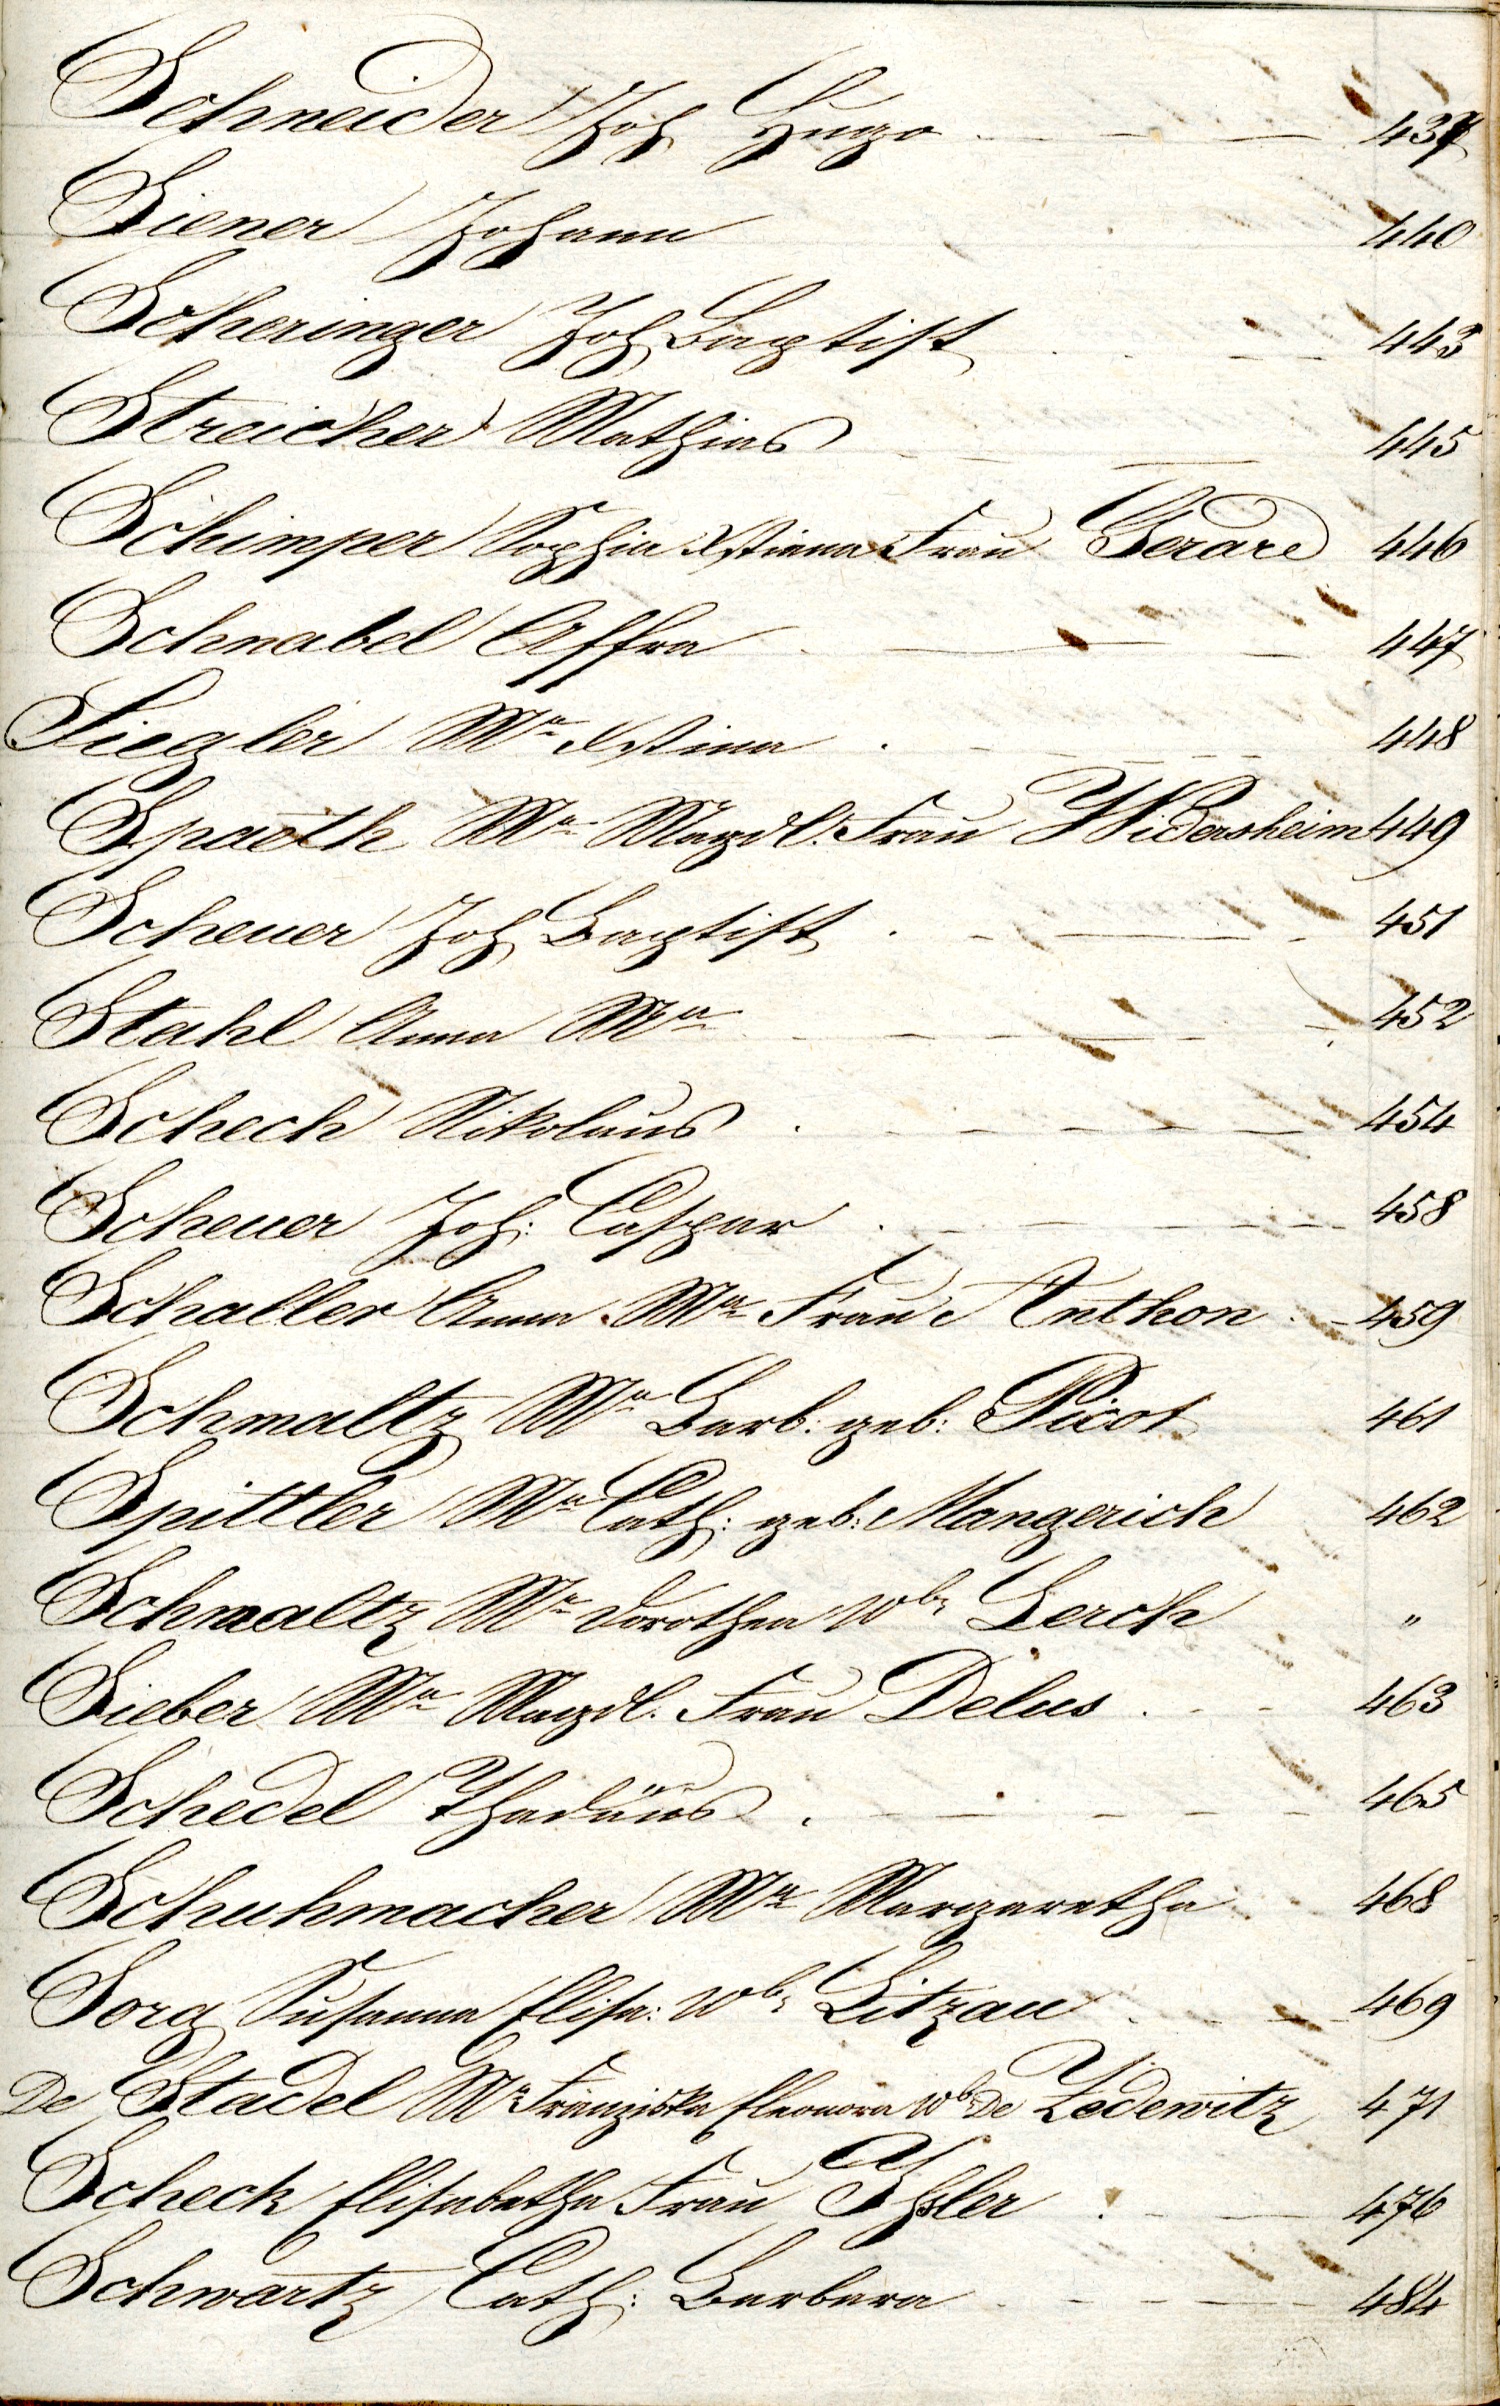 Schneider Joh Hugo 437
Siener Johann 440
Scheringer Joh Baptist 443
Streicher Mathias 445
Schimper Sophia Xstiana Frau Gerard 446
Schnabel Affra 447
Siegler Ma Xstina 448
Spaeth Ma Magdl. Frau Widersheim 449
Scheuer Joh Baptist 451
Stahl Anna Ma 452
Schech Nikolaus 454
Scheuer Joh: Caspar 458
Schaller Anna Ma Frau Anthon 459
Schmaltz Ma Barb: geb: Picot 461
Spittler Ma Cath: geb: Mangerich 462
Schmaltz Ma Dorothea Wb: Lerch "
Sieber Ma Magdl. Frau Delus 463
Schedel Thadäus 465
Schuhmacher Ma Margaretha 468
Sorg Susanna Elisa: Wb: Litzau 469
De Stadel Ma Franziska Eleonora Wb: De Zedewitz 471
Scheck Elisabetha Frau 476
Schwartz Cath: Barbara 484